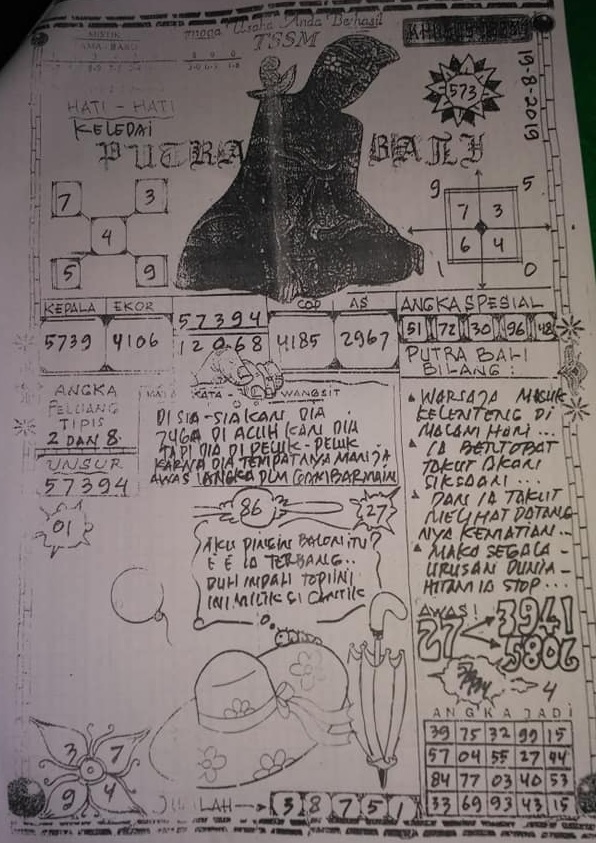 Usaha Anda Berhasil
TSSM
MISTIK
573
19-8-2019
HATI - HATI
KELEDAI
PUTRA BALI
7 3
4
5 9
9 5
7 3
6 4
1 0
KEPALA EKOR
5739 4106
57394
12068
COP AS
4185 2967
ANGKA SPESIAL
51 72 30 96 48
PUTRA BALI
BILANG :
ANGKA
PELUANG
TIPIS
2 DAN 8.
UNSUR
57394
01
KATA - WANGSIT
DI SIA - SIAKAN DIA
DI ACUH KAN DIA
TAPI DIA DI PELUK - PELUK
KARNA DIA TEMPATNYA MANJA
AWAS ANGKA DLM GAMBAR MAIN
86
27
AKU PINGIN BALON ITU?
E E IA TERBANG..
DUH INDAH TOPI INI
INI MILIK SI CANTIK
WARSAJA MASUK
KELENTENG DI
MALAM HARI...
IA BERTOBAT
TAKUT AKAN
SIKSAAN...
DAN IA TAKUT
MELIHAT DATANG
NYA KEMATIAN...
MAKO SEGALA -
URUSAN DUNIA -
HITAM IA STOP...
AWAS!
27
3941
5806
4
ANGKA JADI
39 75 32 99 15
57 04 55 27 44
84 77 03 40 53
33 69 93 43 15
3 7
9 4
JUMLAH → 3 8 7 5 1